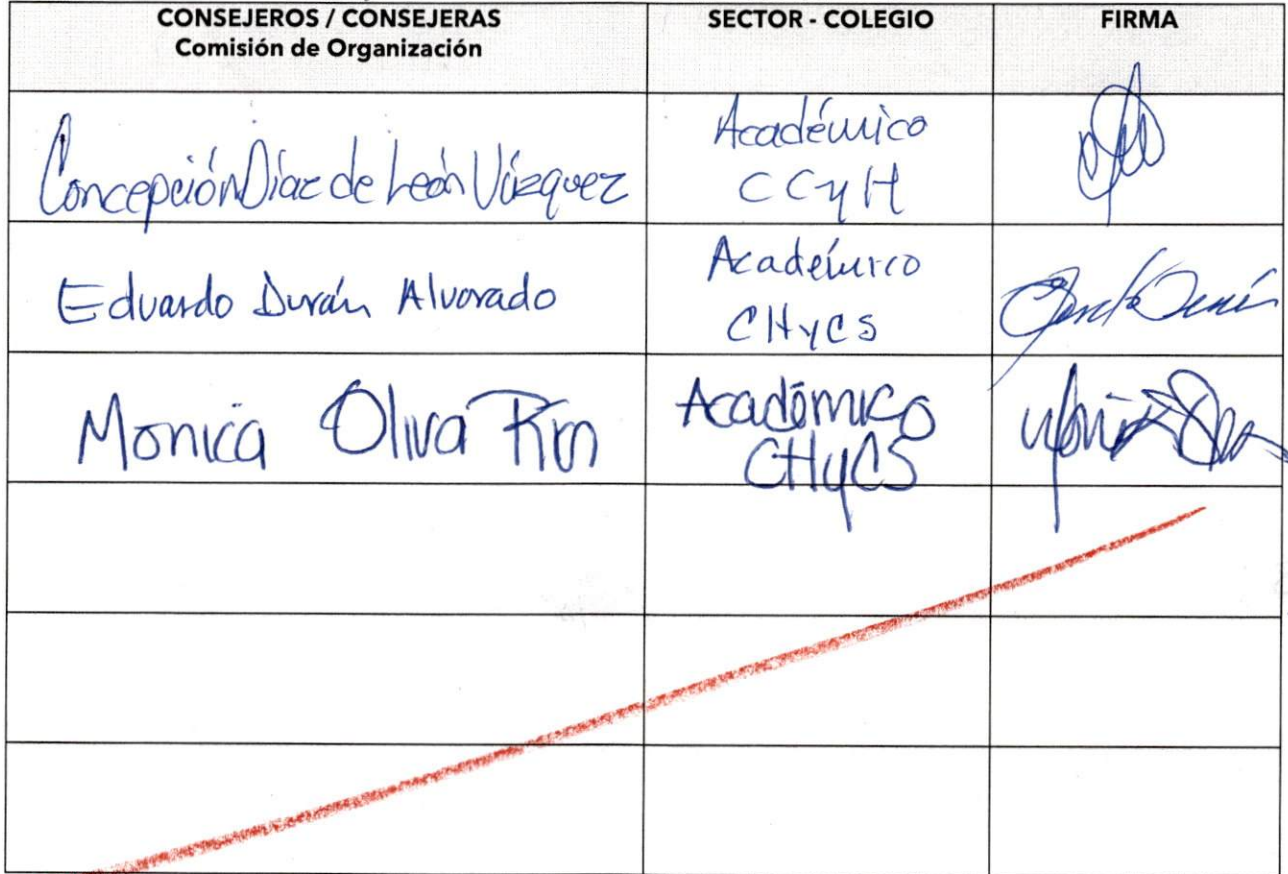 CONSEJEROS / CONSEJERAS
Comisión de Organización
SECTOR - COLEGIO
FIRMA
Concepción Díaz de León Vázquez
Académico
CCyH
Eduardo Durán Alvarado
Académico
CHyCS
Monica Oliva
Académico
CHyCS